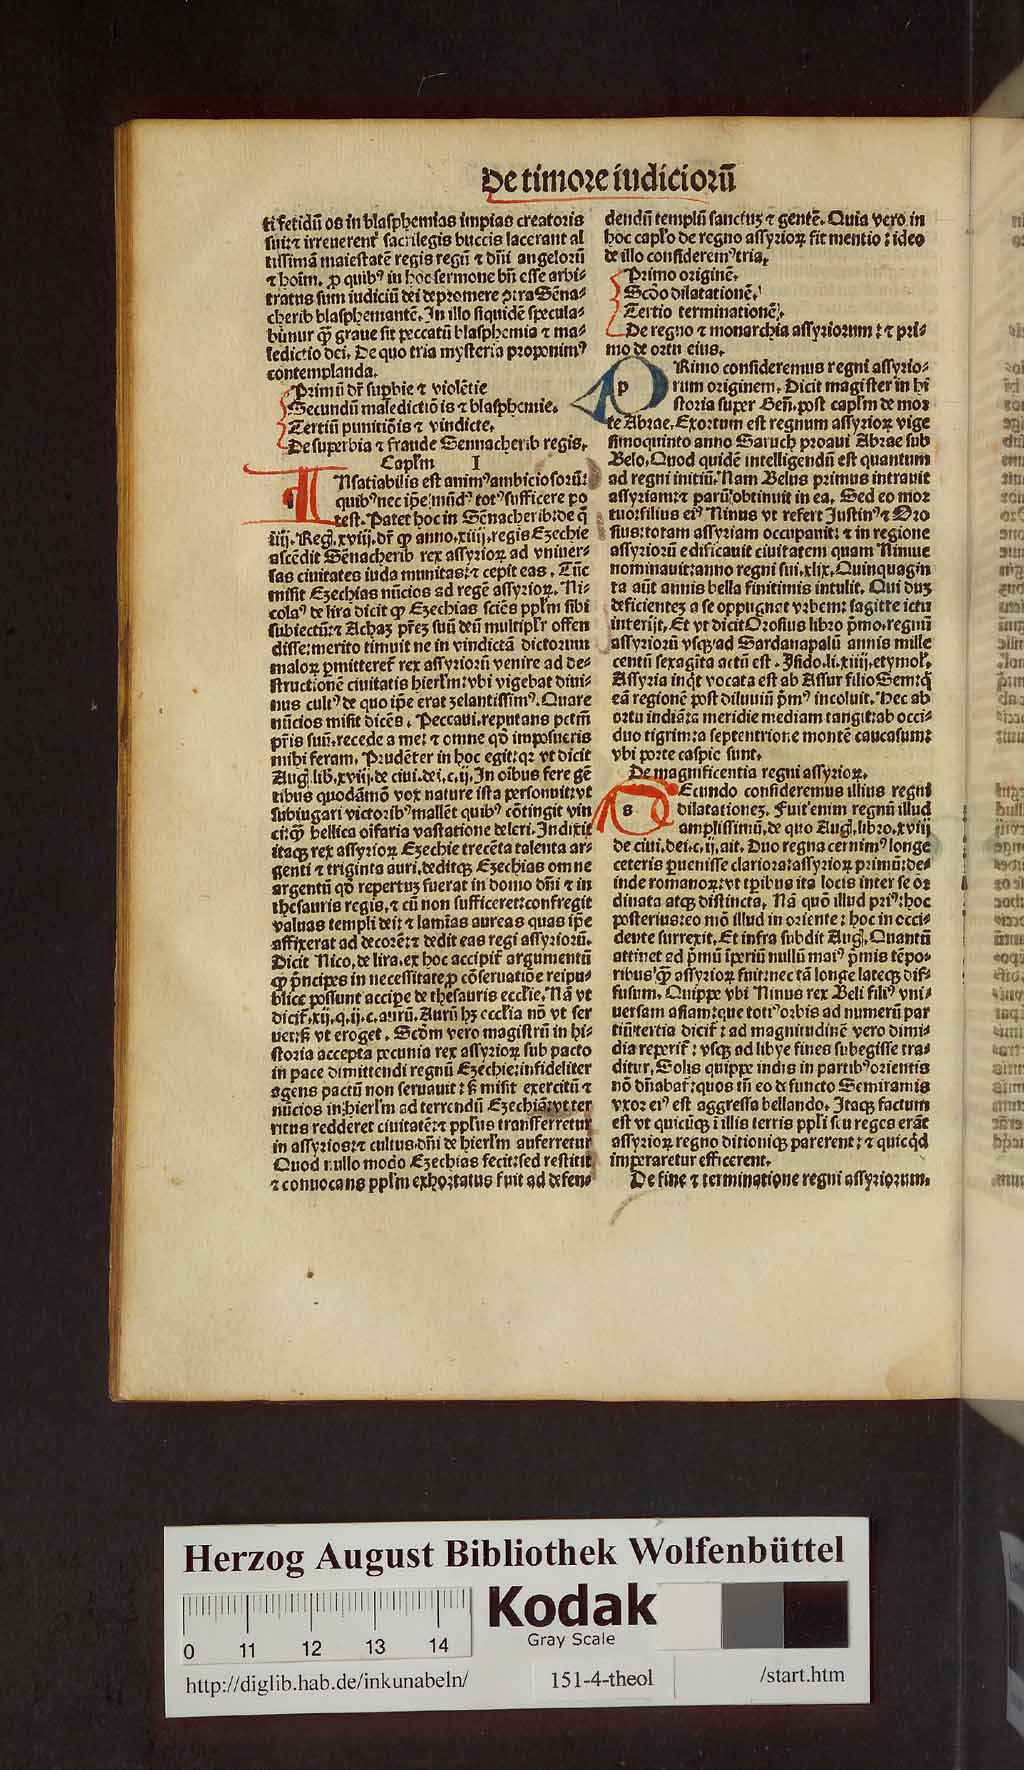 De timore iudiciorū
ti fetidū os in blasphemias impias creatoris
sui: ⁊ irreuerent᷒ sacrilegis buccis lacerant al
tissimā maiestatē regis regū ⁊ dn̄i angelorū
⁊ hoīm. ꝓ quibꝰ in hoc sermone bn̄ esse arbi-
tratus sum iudiciū dei depromere ꝯtra Sēna-
cherib blasphemantē. In illo siquidē specula-
bimur ꝙ̄ graue sit peccatū blasphemia ⁊ ma-
ledictio dei. De quo tria mysteria proponimꝰ
contemplanda.
Primū dr̄ supbie ⁊ violētie
Secundū maledictiōis ⁊ blasphemie.
Tertiū punitiōis ⁊ vindicte.
De superbia ⁊ fraude Sennacherib regis.
Caplm̄ I
INsatiabilis est animꝰ ambiciosorū:
quibꝰ nec ip̄e mūdꝰ totꝰ sufficere po
test. Patet hoc in Sēnacherib: de q̄
iiij. Reg. xviij. dr̄ ꝙ anno. xiiij. regis Ezechie
ascēdit Sēnacherib rex assyrioꝝ ad vniuer-
sas ciuitates iuda munitas: ⁊ cepit eas. Tūc
misit Ezechias nūcios ad regē assyrioꝝ. Ni-
colaꝰ de lira dicit ꝙ Ezechias sciēs pplm̄ sibi
subiectū: ⁊ Achaz pr̄ez suū deū multiplr̄ offen
disse: merito timuit ne in vindictā dictorum
maloꝝ ꝑmitteret᷒ rex assyriorū venire ad de-
structionē ciuitatis hierlm̄: vbi vigebat diui-
nus cultꝰ de quo ip̄e erat zelantissimꝰ. Quare
nūcios misit dicēs. Peccaui. reputans pctm̄
pr̄is suū. recede a me: ⁊ omne qd̄ imposueris
mihi feram. Prudēter in hoc egit: qꝛ vt dicit
Aug. lib. xviij. de ciui. dei. c. ij. In oībus fere gē
tibus quodāmō vox nature ista personuit: vt
subiugari victoribꝰ mallēt quibꝰ cōtingit vin
ci: ꝙ̄ bellica oīfaria vastatione deleri. Indixit
itaqꝫ rex assyrioꝝ Ezechie trecēta talenta ar-
genti ⁊ triginta auri. deditqꝫ Ezechias omne
argentū qd̄ repertuꝫ fuerat in domo dn̄i ⁊ in
thesauris regis. ⁊ cū non sufficeret: confregit
valuas templi dei: ⁊ lamīas aureas quas ip̄e
affixerat ad decorē: ⁊ dedit eas regi assyriorū.
Dicit Nico. de lira. ex hoc accipit᷒ argumentū
ꝙ p̄ncipes in necessitate ꝓ cōseruatiōe reipu-
blice possunt accipe de thesauris ecclie. Nā vt
dicit᷒. xij. q. ij. c. aurū. Aurū hꝫ ecclia nō vt ser
uet: sꝫ vt eroget. Scdm vero magistrū in hi-
storia accepta pecunia rex assyrioꝝ sub pacto
in pace dimittendi regnū Ezechie: infideliter
agens pactū non seruauit: sꝫ misit exercitū ⁊
nūcios in hierlm̄ ad terrendū Ezechiā: vt ter
ritus redderet ciuitatē: ⁊ pplus transferretur
in assyrios: ⁊ cultus dn̄i de hierlm̄ auferretur
Quod nullo modo Ezechias fecit: sed restitit
⁊ conuocans pplm̄ exhortatus fuit ad defen-
dendū templū sanctuꝫ ⁊ gentē. Quia vero in
hoc caplo de regno assyrioꝝ fit mentio: ideo
de illo consideremꝰ tria.
Primo originē.
Scdo dilatationē.
Tertio terminationē.
De regno ⁊ monarchia assyriorum: ⁊ pri-
mo de ortu eius.
PRimo consideremus regni assyrio-
rum originem. Dicit magister in hi
storia super Gen̄. post caplm̄ de mor
te Abrae. Exortum est regnum assyrioꝝ vige
simoquinto anno Saruch proaui Abrae sub
Belo. Quod quidē intelligendū est quantum
ad regni initiū. Nam Belus primus intrauit
assyriam: ⁊ parū obtinuit in ea. Sed eo mor
tuo: filius eiꝰ Ninus vt refert Justinꝰ ⁊ Oro
sius: totam assyriam occupauit: ⁊ in regione
assyriorū edificauit ciuitatem quam Niniue
nominauit: anno regni sui. xlix. Quinquagin
ta aūt annis bella finitimis intulit. Qui duꝫ
deficienteꝫ a se oppugnat vrbem: sagitte ictu
interijt. Et vt dicit Orosius libro p̄mo. regnū
assyriorū vsqꝫ ad Sardanapalū annis mille
centū sexagīta actū est. Isido. li. xiiij. etymol.
Assyria inq̄t vocata est ab Assur filio Sem: q̄
eā regionē post diluuiū p̄mꝰ incoluit. Hec ab
ortu indiā: a meridie mediam tangit: ab occi-
duo tigrim: a septentrione montē caucasum:
vbi porte caspie sunt.
De magnificentia regni assyrioꝝ.
SEcundo consideremus illius regni
dilatationeꝫ. Fuit enim regnū illud
amplissimū. de quo Aug. libro. xviij
de ciui. dei. c. ij. ait. Duo regna cernimꝰ longe
ceteris ꝑuenisse clariora: assyrioꝝ primū: de-
inde romanoꝝ: vt tp̄ibus ita locis inter se or
dinata atqꝫ distincta. Nā quō illud priꝰ: hoc
posterius: eo mō illud in oriente: hoc in occi-
dente surrexit. Et infra subdit Aug. Quantū
attinet ad p̄mū īperiū nullū maiꝰ p̄mis tēpo-
ribus ꝙ̄ assyrioꝝ fuit: nec tā longe lateqꝫ dif-
fusum. Quippe vbi Ninus rex Beli filiꝰ vni-
uersam asiam: que totiꝰ orbis ad numerū par
tiū tertia dicit᷒: ad magnitudinē vero dimi-
dia reperit᷒: vsqꝫ ad libye fines subegisse tra-
ditur. Solis quippe indis in partibꝰ orientis
nō dn̄abat᷒: quos tn̄ eo defuncto Semiramis
vxor eiꝰ est aggressa bellando. Itaqꝫ factum
est vt quicūqꝫ ī illis terris ppli seu reges erāt
assyrioꝝ regno ditioniqꝫ parerent: ⁊ quicqd̄
imperaretur efficerent.
De fine ⁊ terminatione regni assyriorum.
Herzog August Bibliothek Wolfenbüttel
Kodak
Gray Scale
0 11 12 13 14
http://diglib.hab.de/inkunabeln/ 151-4-theol /start.htm